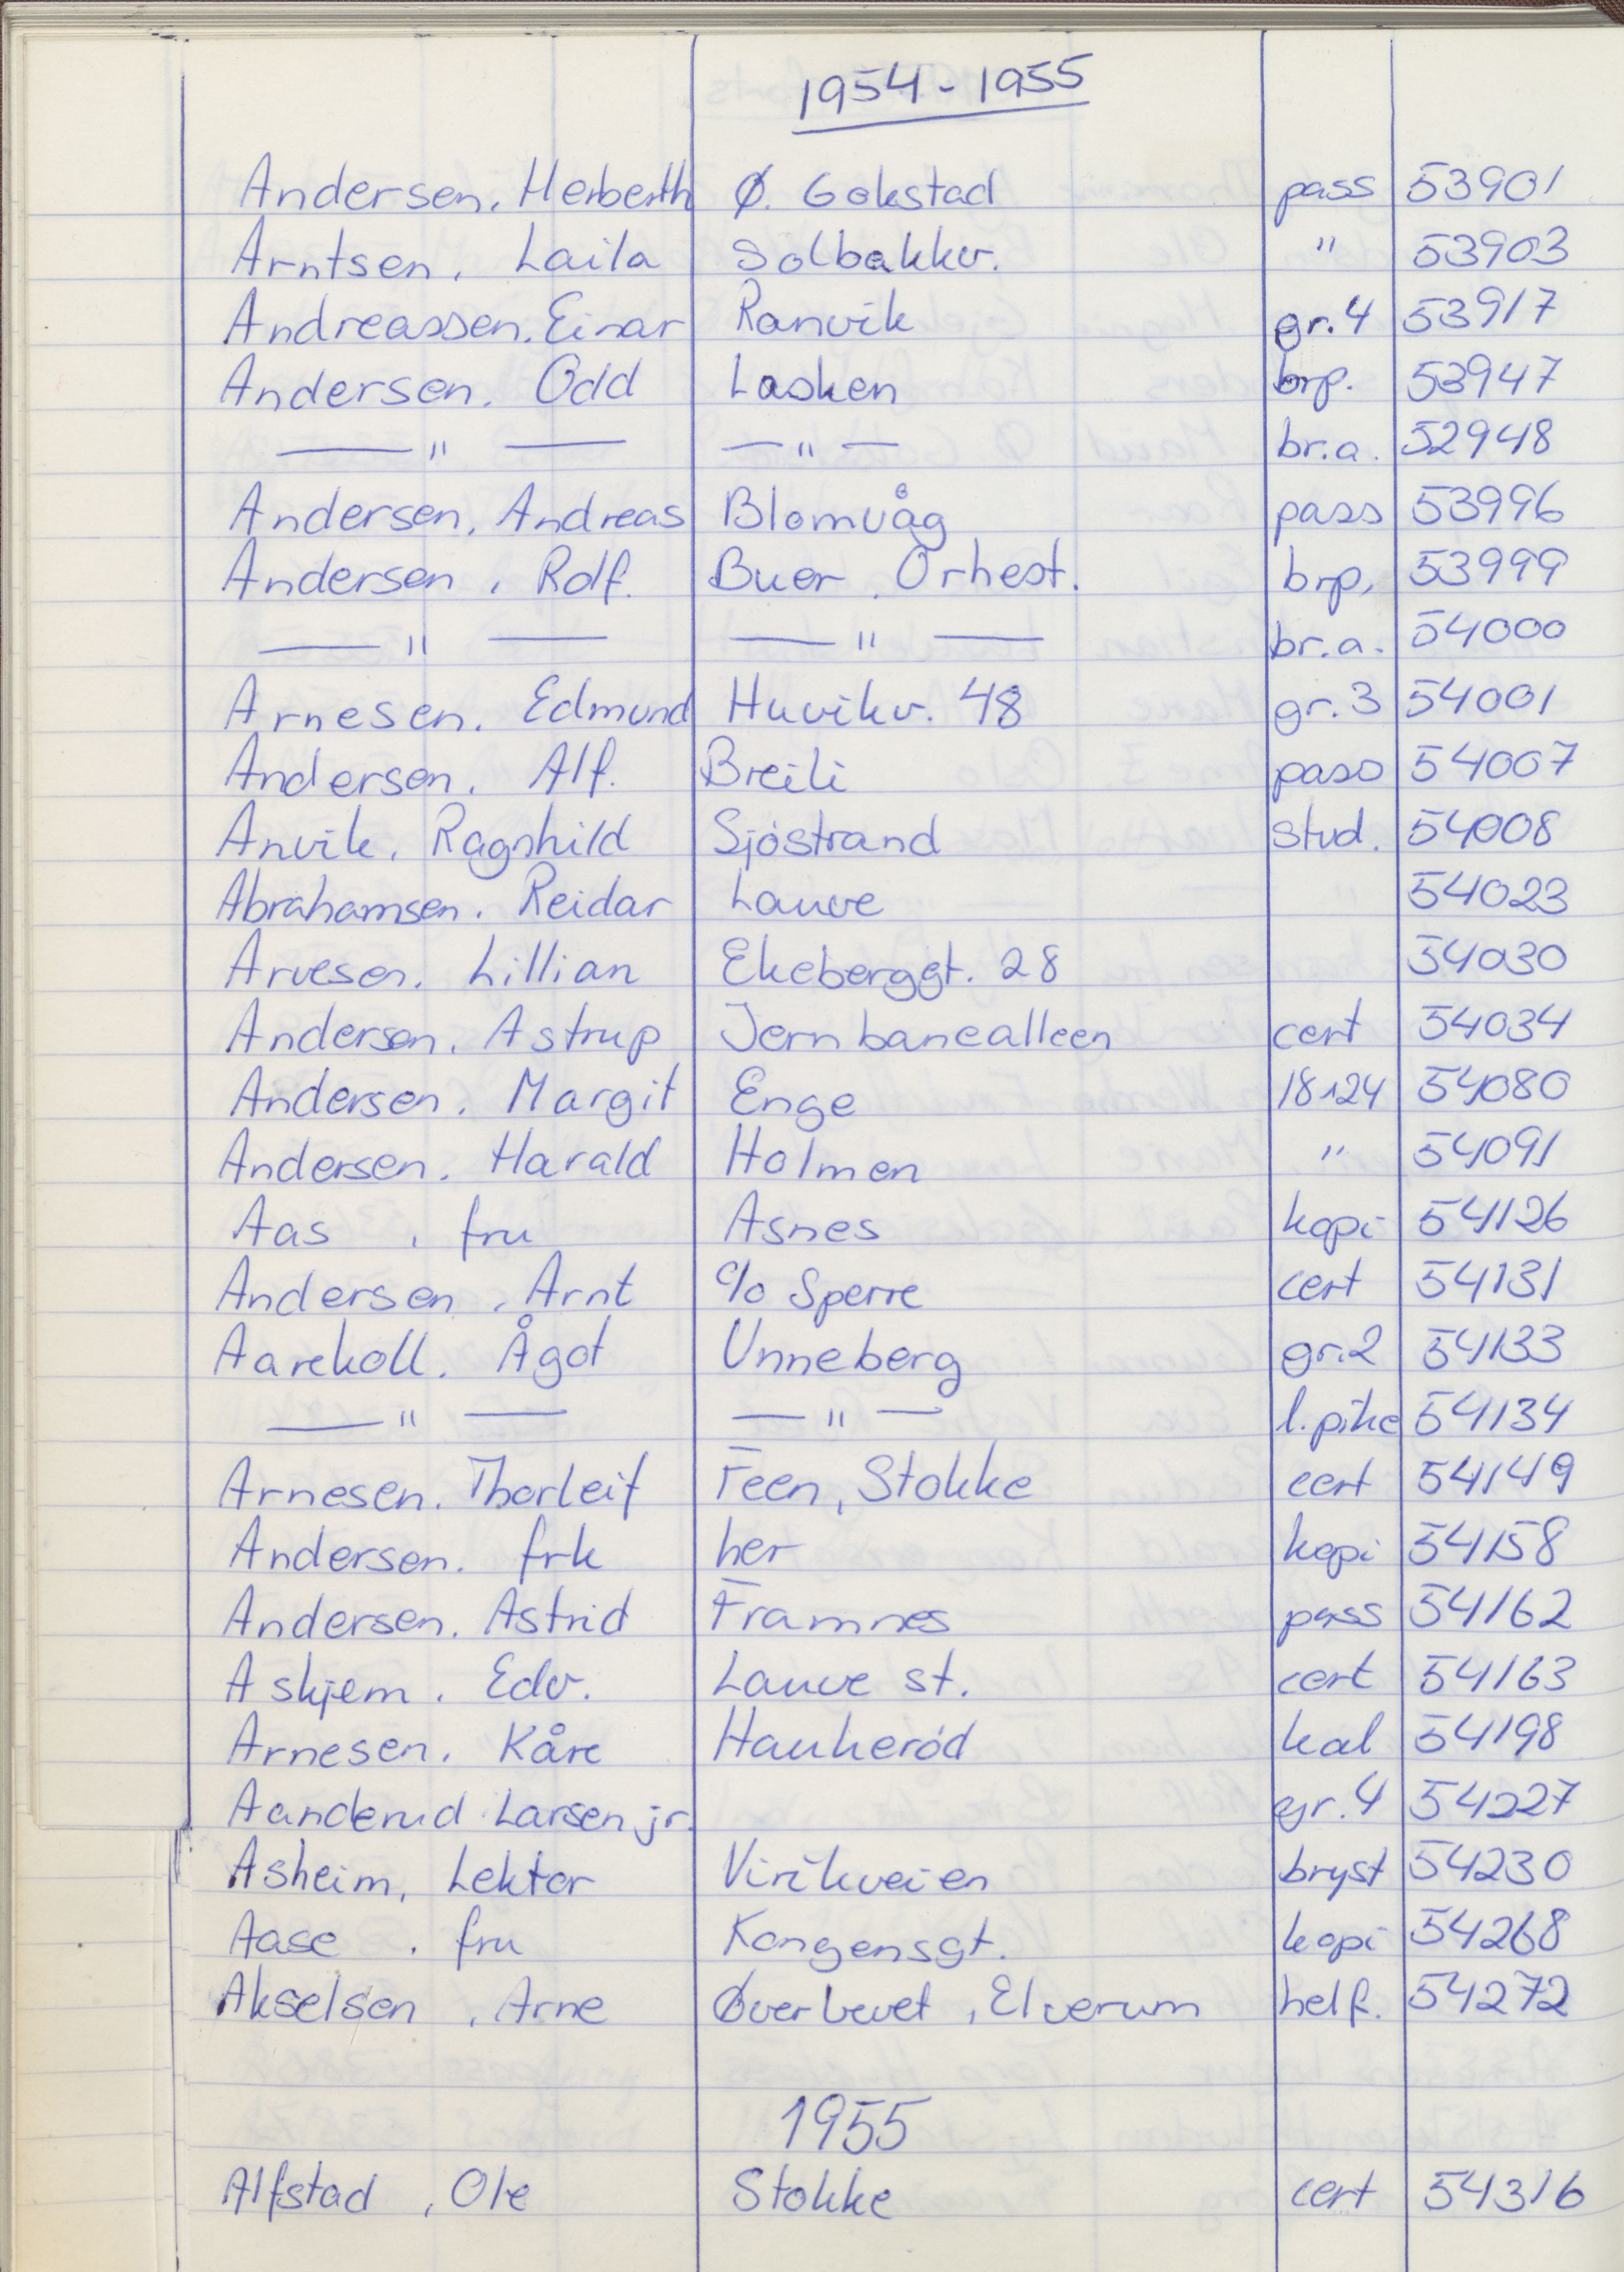 1954-1955
Andersen, Herberth Ø. Gokstad pass 53901
Arntsen, Laila Solbakkv. " 53903
Andreassen, Einar Ranvik gr.4 53917
Andersen, Odd Lasken brp. 53947
— " — — " — br.a. 52948
Andersen, Andreas Blomvåg pass 53996
Andersen, Rolf. Buer, Orhest. brp, 53999
— " — — " — br.a. 54000
Arnesen, Edmund Huvikv. 48 gr.3 54001
Andersen, Alf. Breili pass 54007
Anvik, Ragnhild Sjöstrand stud. 54008
Abrahamsen, Reidar Lauve 54023
Arvesen, Lillian Ekeberggt. 28 54030
Andersen, Astrup Jernbanealleen cert 54034
Andersen, Margit Enge 18x24 54080
Andersen, Harald Holmen " 54091
Aas, fru Asnes kopi 54126
Andersen, Arnt c/o Sperre cert 54131
Aarekoll, Ågot Unneberg gr.2 54133
— " — — " — l.pike 54134
Arnesen, Thorleif Feen, Stokke cert 54149
Andersen, frk her kopi 54158
Andersen, Astrid Framnes pass 54162
Askjem, Edv. Lauve st. cert 54163
Arnesen, Kåre Haukeröd kal 54198
Aanderud Larsen jr. gr.4 54227
Asheim, Lektor Virikveien bryst 54230
Aase, fru Kongensgt. kopi 54268
Akselsen, Arne Øverbevet, Elverum helf. 54272
1955
Alfstad, Ole Stokke cert 54316